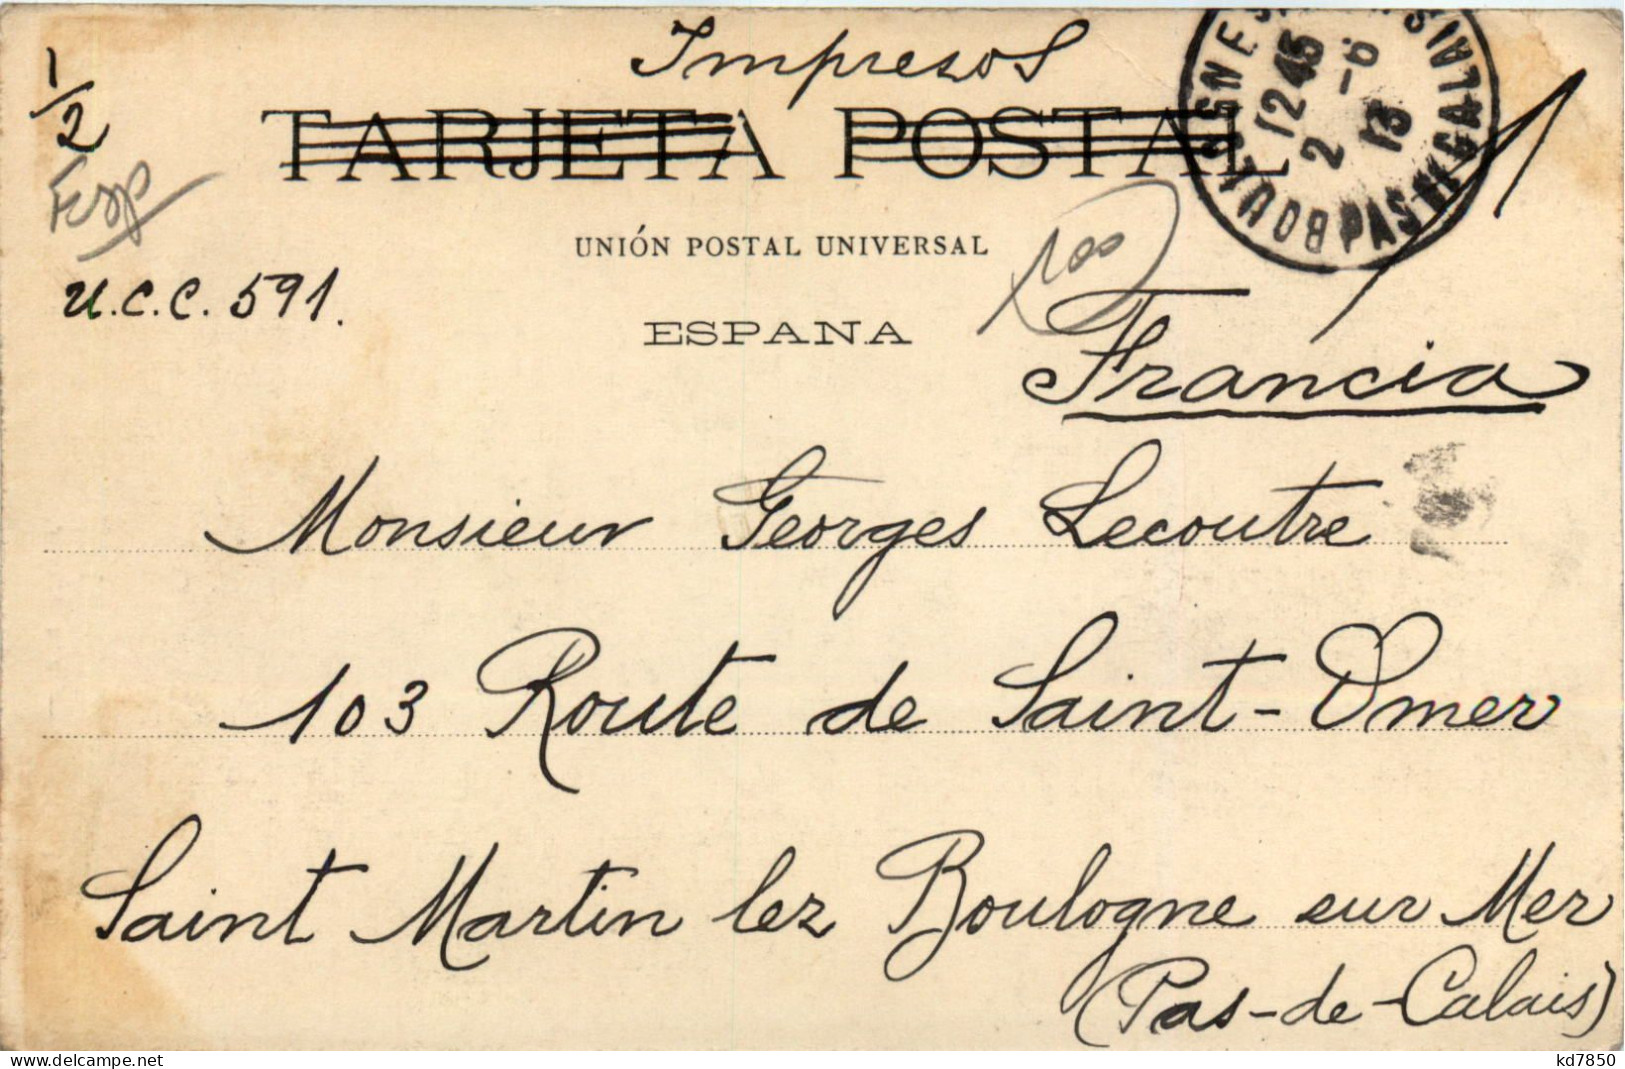 Impresos
1/2
TARJETA POSTAL
Esp
UNIÓN POSTAL UNIVERSAL
100
U.C.C. 591.
ESPANA
Francia
BOULOGNE S MER PAS DE CALAIS
1245
2 - 6
13
Monsieur Georges Lecoutre
103 Route de Saint-Omer
Saint Martin lez Boulogne sur Mer
(Pas-de-Calais)
www.delcampe.net
kd7850